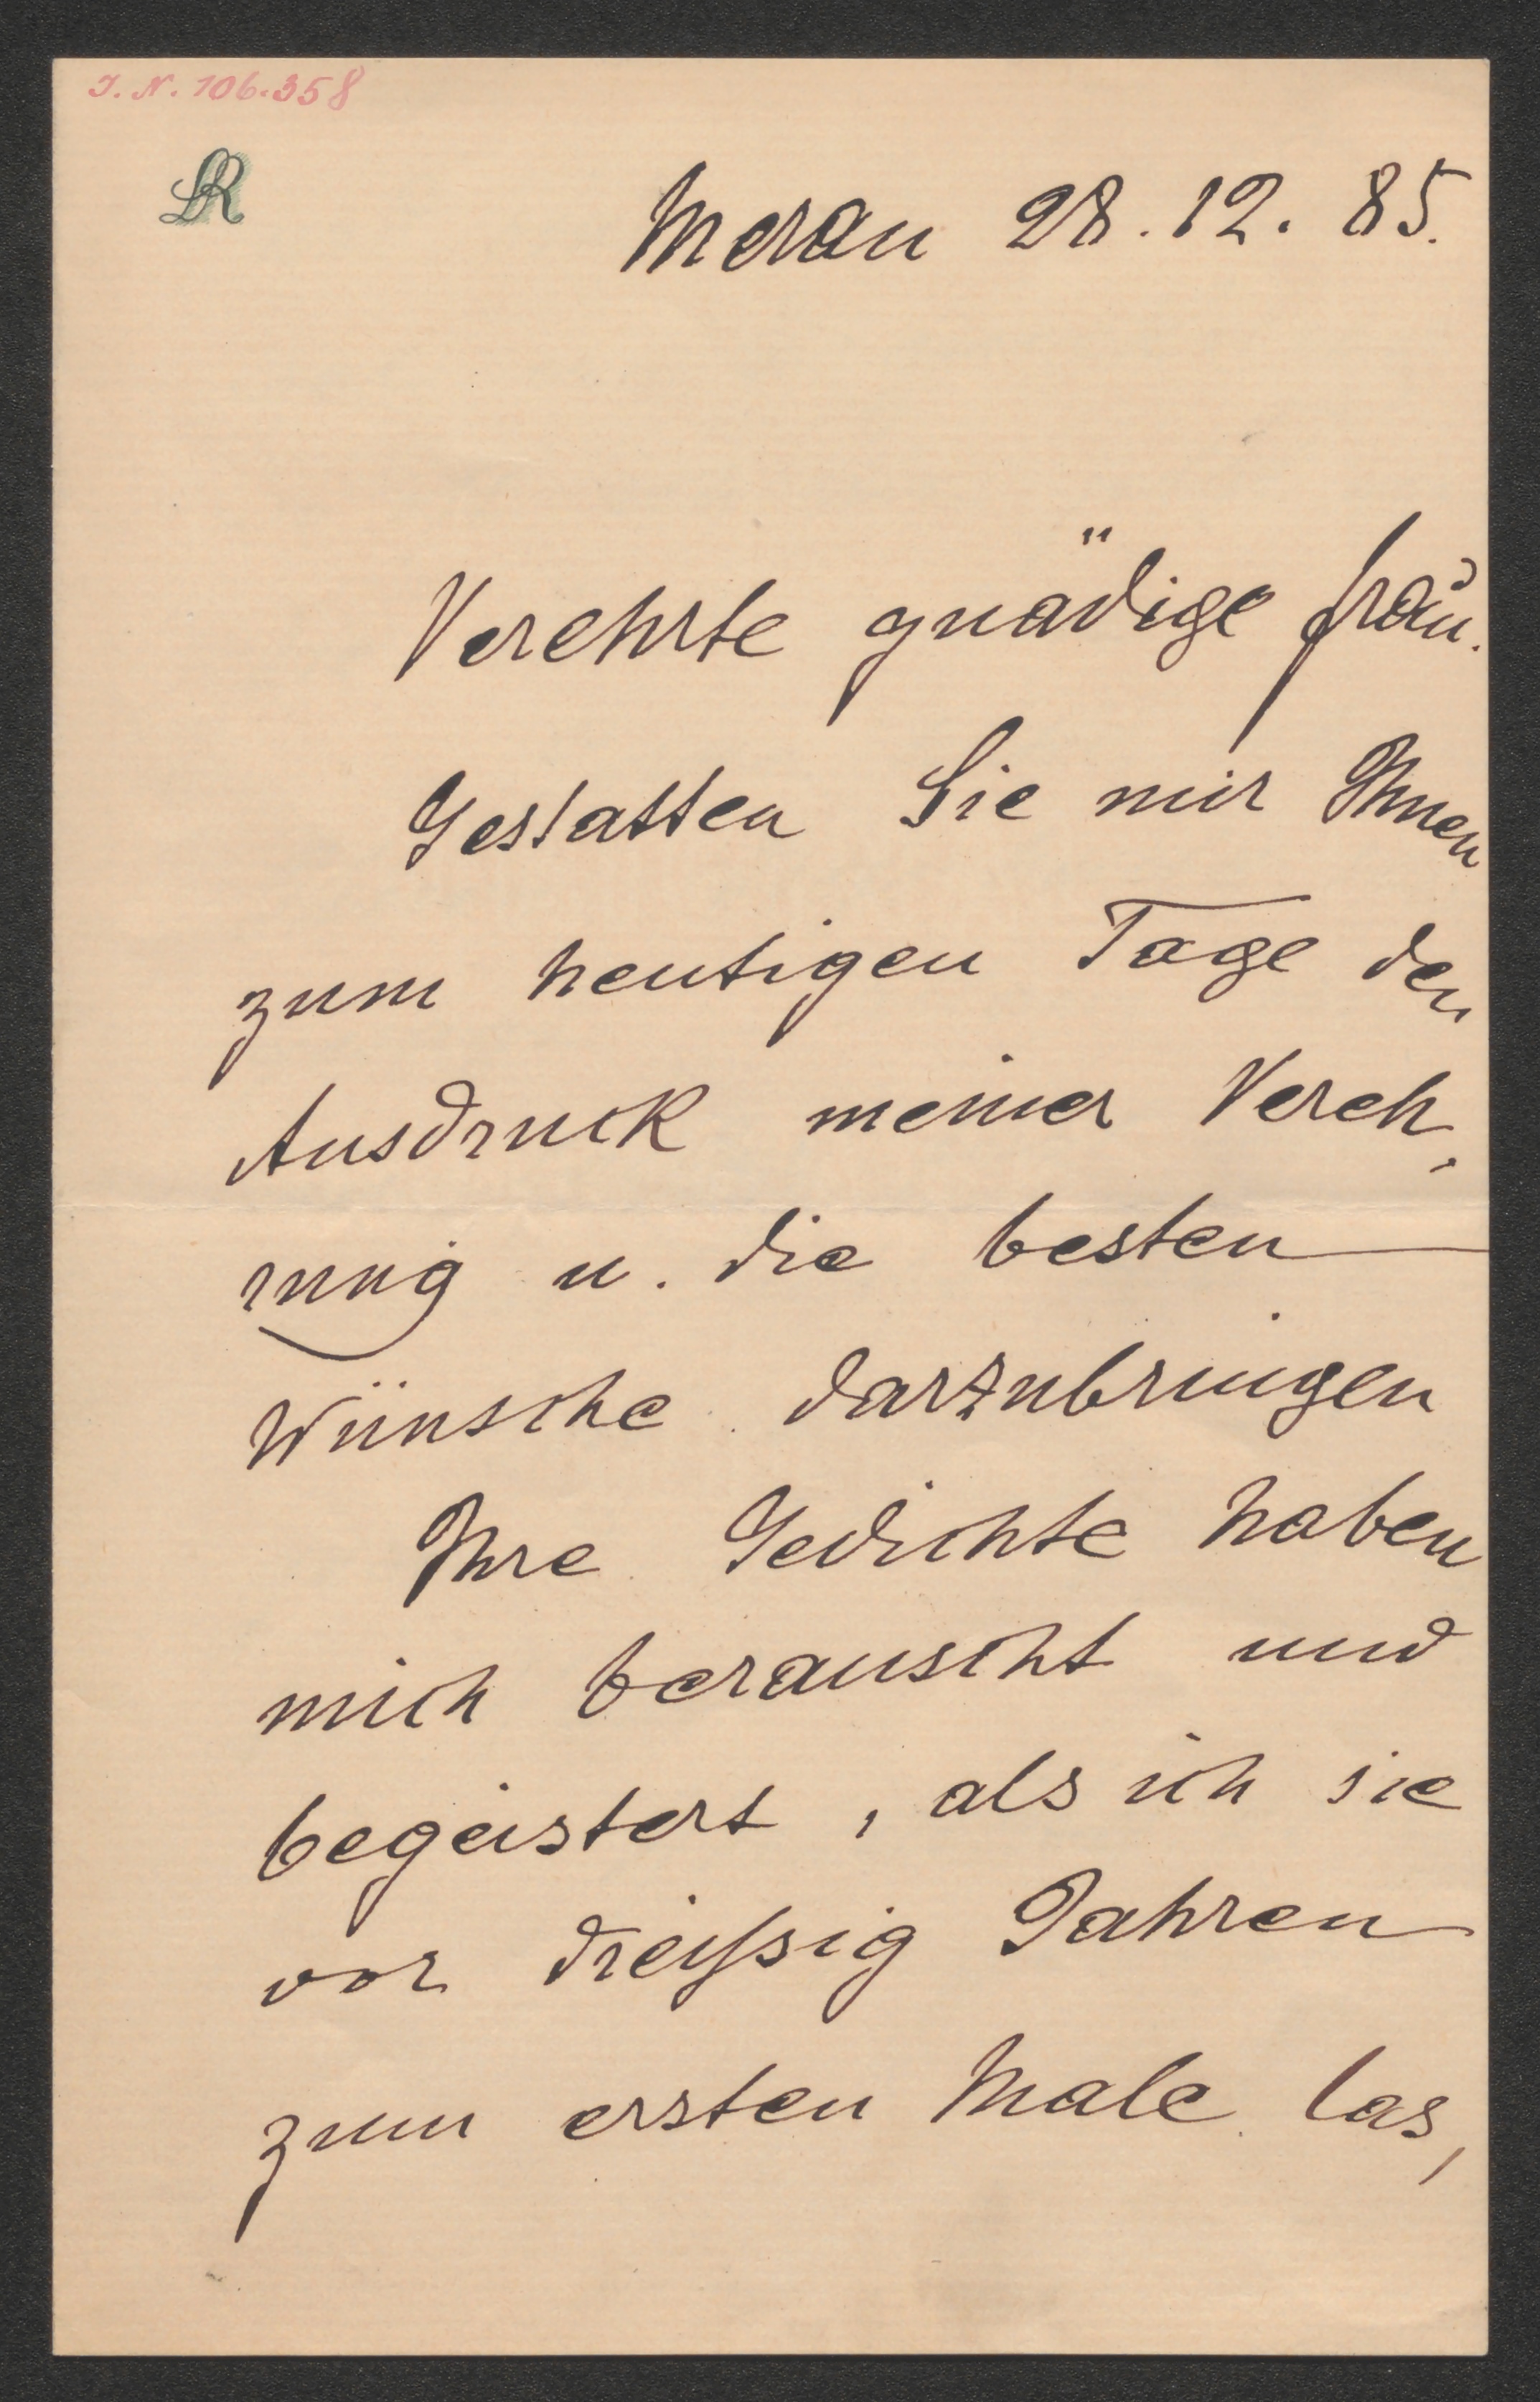 J. N. 106.358
LR
Meran 28. 12. 85.
Verehrte gnädige Frau.
Gestatten Sie mir Ihnen
zum heutigen Tage den
Ausdruck meiner Vereh,
rung u. die besten
Wünsche darzubringen
Ihre Gedichte haben
mich berauscht und
begeistert, als ich sie
vor dreißig Jahren
zum ersten Male las,